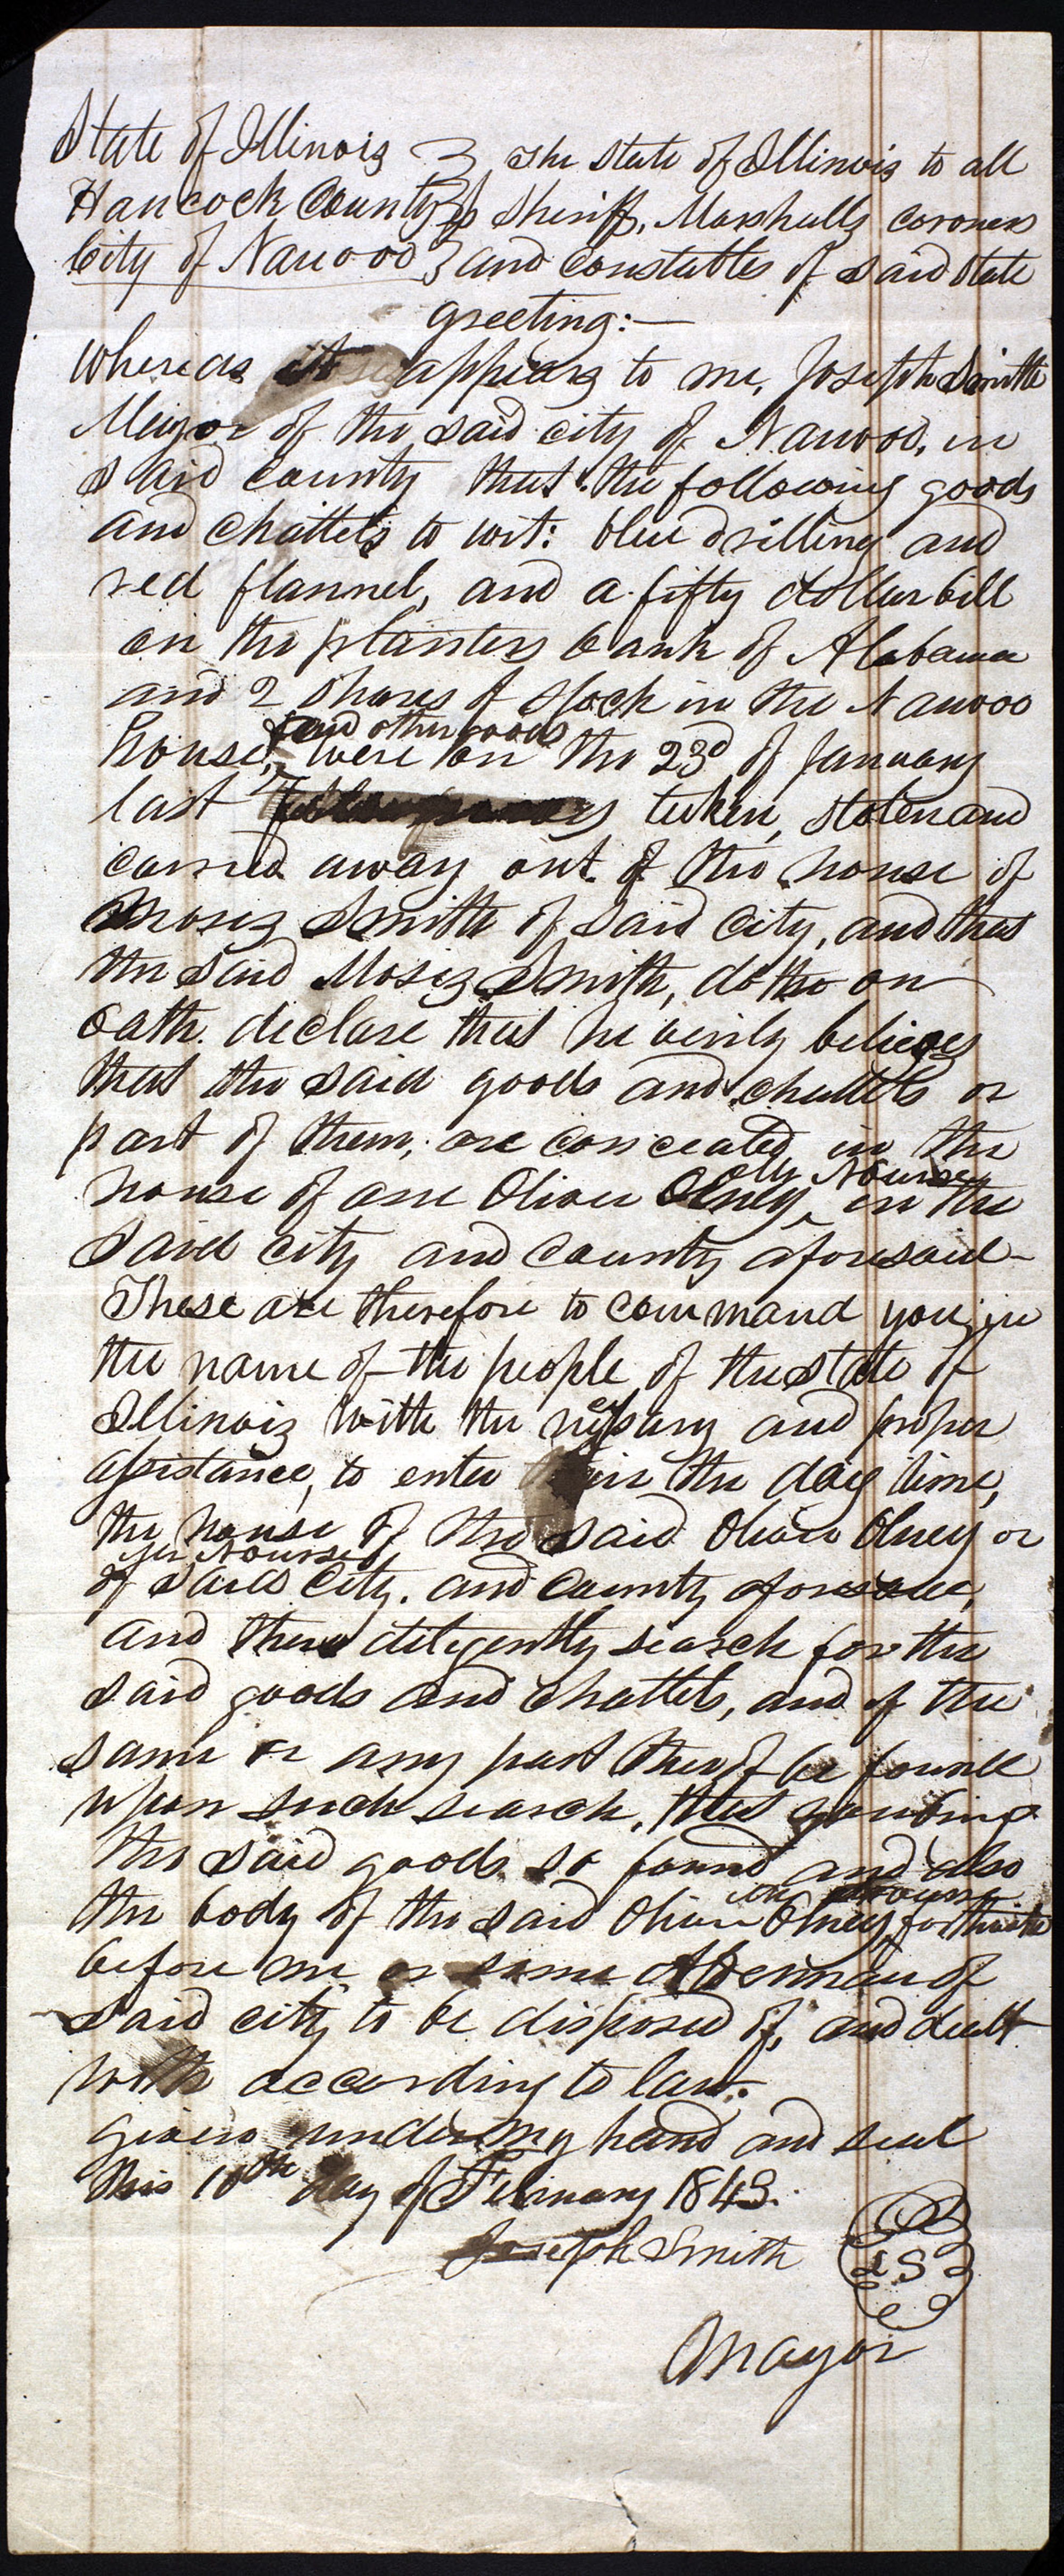 State of Illinois } The State of Illinois to all
Hancock County } ss Sheriff, Marshalls coroners
City of Nauvoo } and constables of said State
greeting:—
Whereas it appears to me, Joseph Smith
Mayor of the said city of Nauvoo, in
said county that the following goods
and chattels to wit: blue drilling and
red flannel, and a fifty dollar bill
on the planters bank of Alabama
and 2 shares of stock in the Nauvoo
and other goods
house, were on the 23d of January
last taken, stolen and
carried away out of the house of
Moses Smith of said city, and that
the said Moses Smith, doth on
oath declare that he verily believes
that the said goods and chattels or
part of them, are concealed in the
or Nourse
house of one Oliver Olney in the
said city and county aforesaid—
These are therefore to command you, in
the name of the people of the state of
Illinois with the nessary and proper
assistance, to enter in the day time,
the house of the said Oliver Olney or
Nourse
of said City. and County aforesaid,
and there diligently search for the
said goods and chattels, and if the
same or any part thereof be found
upon such search, that you bring
the said goods so found and also
or Nourse
the body of the said Oliver Olney forthwith
before me or some Alderman of
said city to be disposed of, and dealt
with according to law.
given under my hand and seal
this 10th day of February 1843.
Joseph Smith LS
Mayor